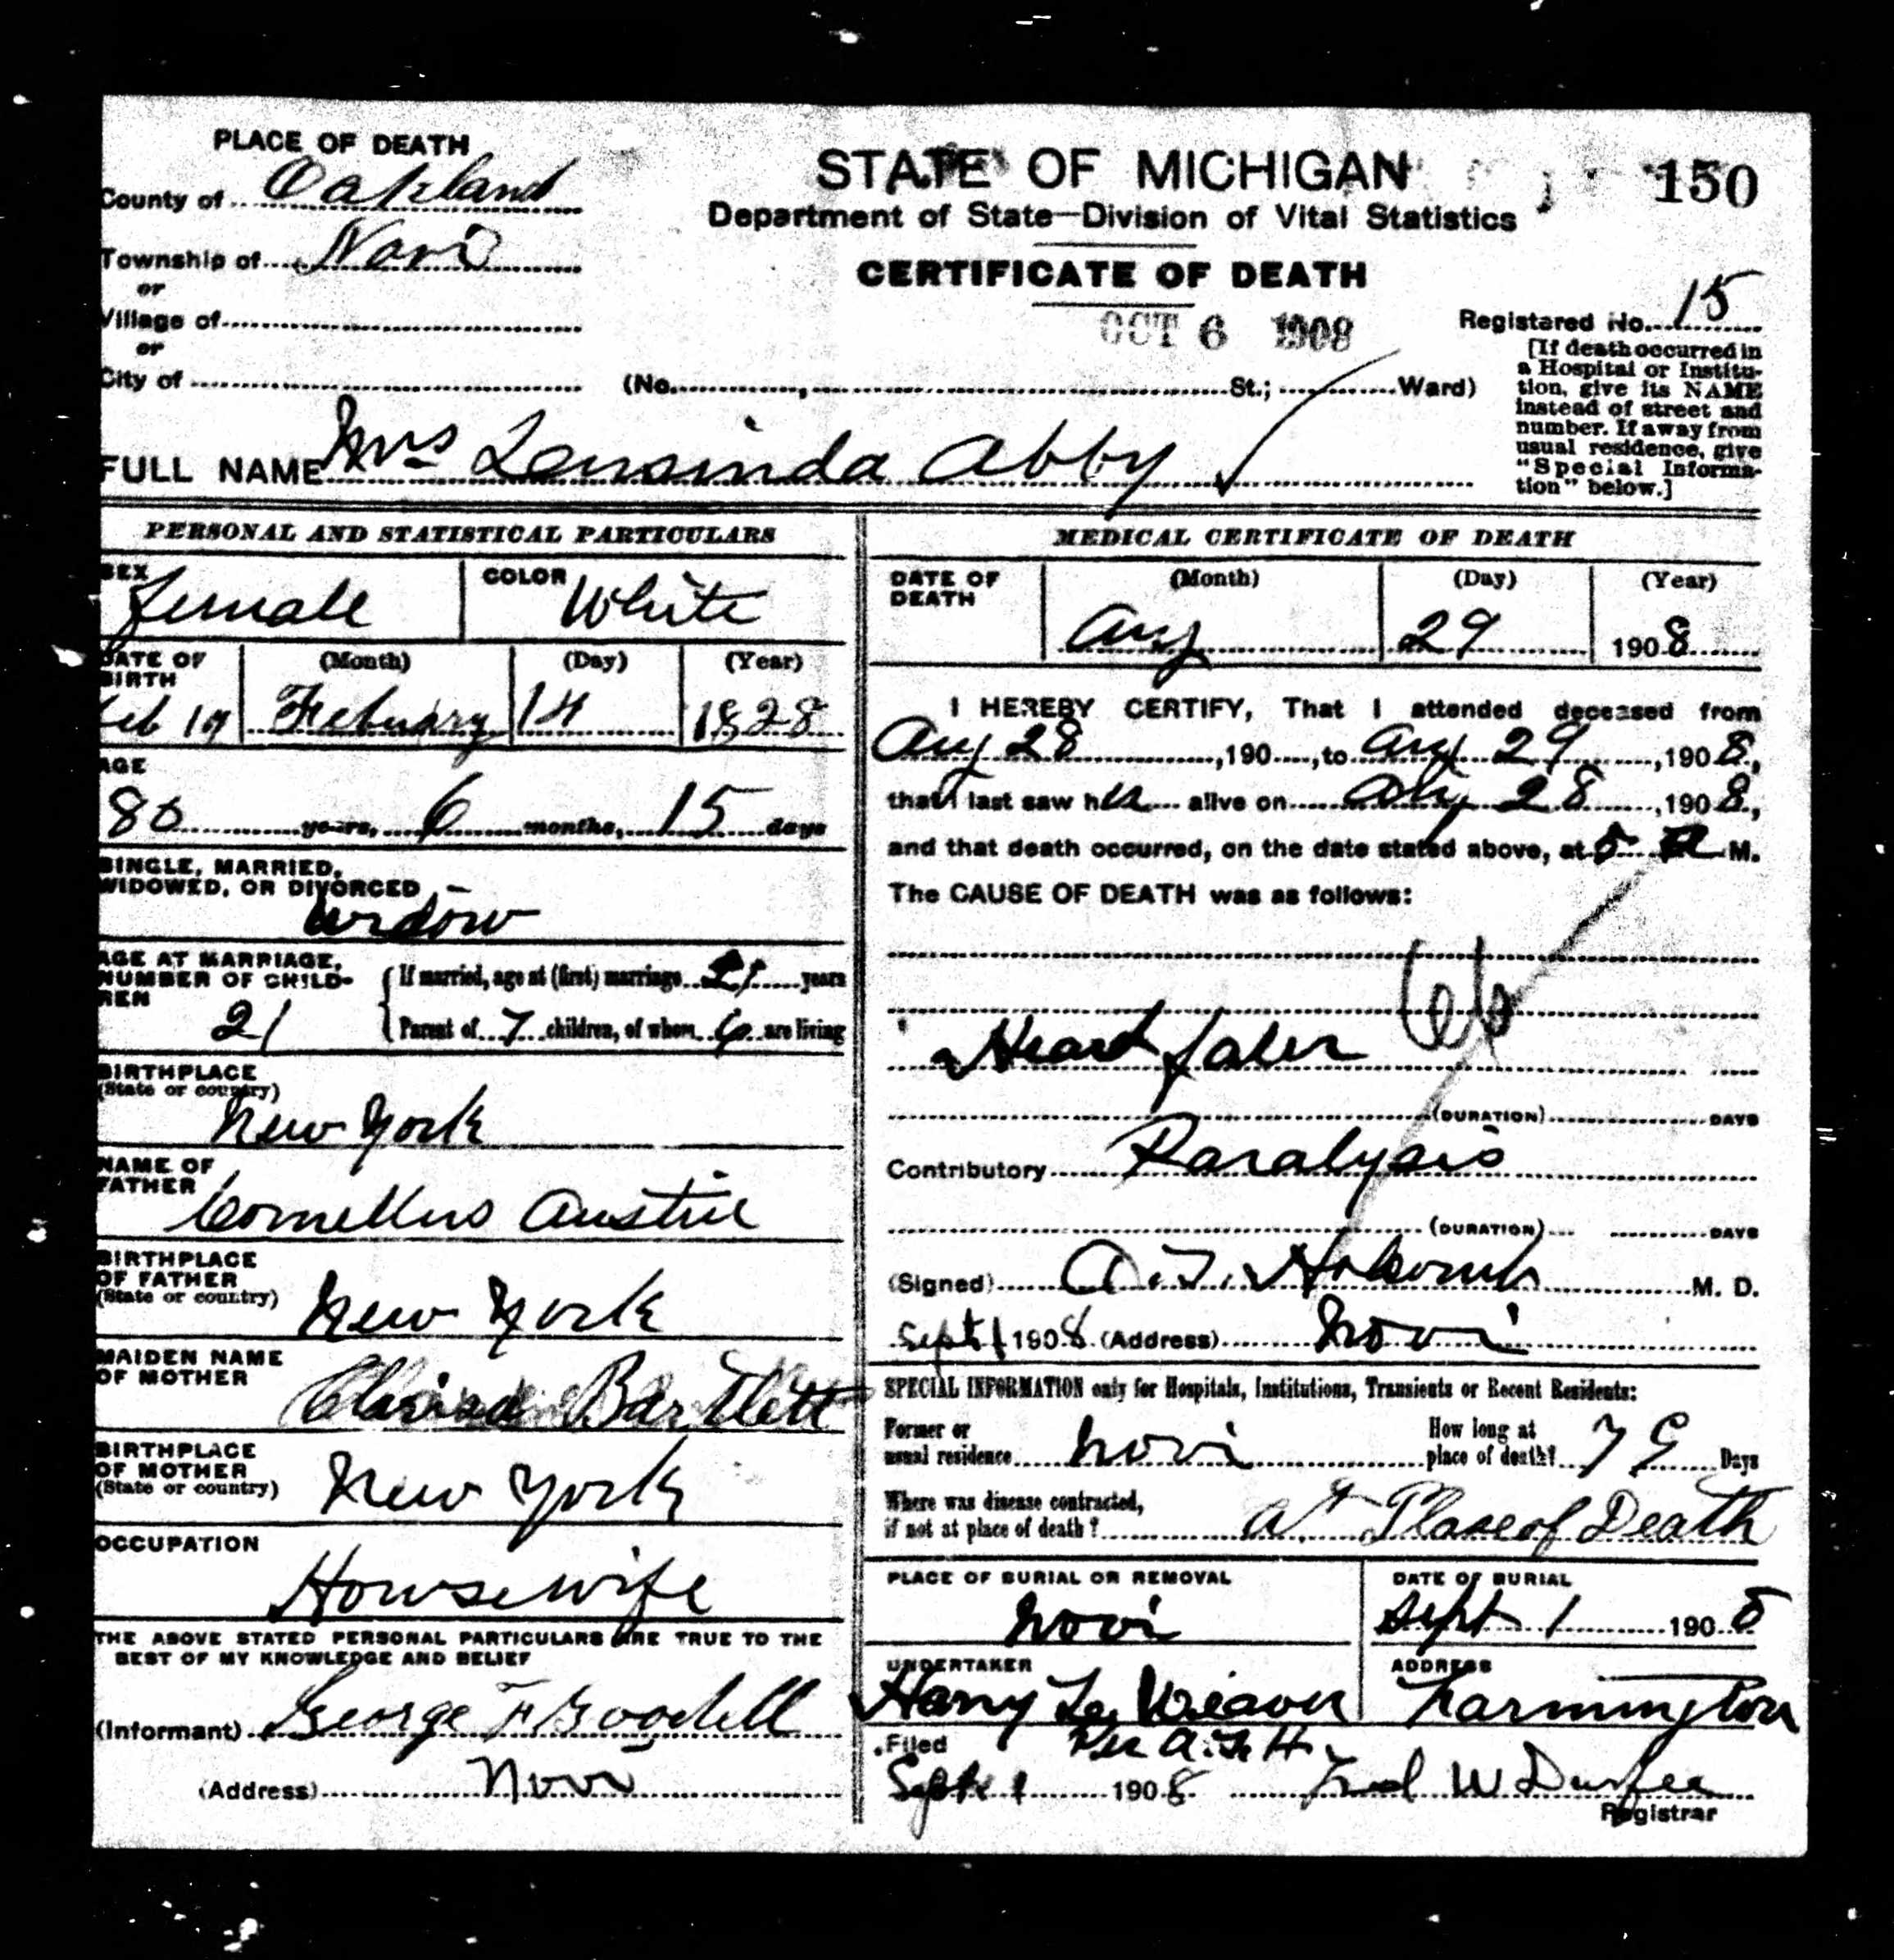 PLACE OF DEATH
County of Oakland
Township of Novi
or
Village of
or
City of
STATE OF MICHIGAN
Department of State—Division of Vital Statistics
CERTIFICATE OF DEATH
OCT 6 1908
150
Registered No. 15
[If death occurred in
a Hospital or Institu-
tion, give its NAME
instead of street and
number. If away from
usual residence, give
"Special Informa-
tion" below.]
(No. , St.; Ward)
FULL NAME Mrs Abby
PERSONAL AND STATISTICAL PARTICULARS
SEX female COLOR White
DATE OF BIRTH (Month) (Day) (Year)
Feb February 14 1828
AGE
80 years, 6 months, 15 days
SINGLE, MARRIED,
WIDOWED, OR DIVORCED
Widow
AGE AT MARRIAGE,
NUMBER OF CHILD-
REN
21
If married, age at (first) marriage 21 years
Parent of 7 children, of whom 6 are living
BIRTHPLACE
(State or country)
New York
NAME OF
FATHER
Cornelius Austin
BIRTHPLACE
OF FATHER
(State or country)
New York
MAIDEN NAME
OF MOTHER
Bartlett
BIRTHPLACE
OF MOTHER
(State or country)
New York
OCCUPATION
Housewife
THE ABOVE STATED PERSONAL PARTICULARS ARE TRUE TO THE
BEST OF MY KNOWLEDGE AND BELIEF
(Informant) George F Goodell
(Address) Novi
MEDICAL CERTIFICATE OF DEATH
DATE OF DEATH (Month) (Day) (Year)
Aug 29 1908
I HEREBY CERTIFY, That I attended deceased from
Aug 28, 190 , to Aug 29, 1908,
that I last saw her alive on Aug 28, 1908,
and that death occurred, on the date stated above, at 5 a M.
The CAUSE OF DEATH was as follows:
Heart
(DURATION) DAYS
Contributory Paralysis
(DURATION) DAYS
(Signed) Holcomb M. D.
Sept 1 1908 (Address) Novi
SPECIAL INFORMATION only for Hospitals, Institutions, Transients or Recent Residents:
Former or
usual residence Novi
How long at
place of death? 79 Days
Where was disease contracted,
if not at place of death? at Place of Death
PLACE OF BURIAL OR REMOVAL
Novi
DATE OF BURIAL
Sept 1 1908
UNDERTAKER
Harry Weaver
ADDRESS
Farmington
Filed
Sept 1 1908 Fred W Durfee
Registrar